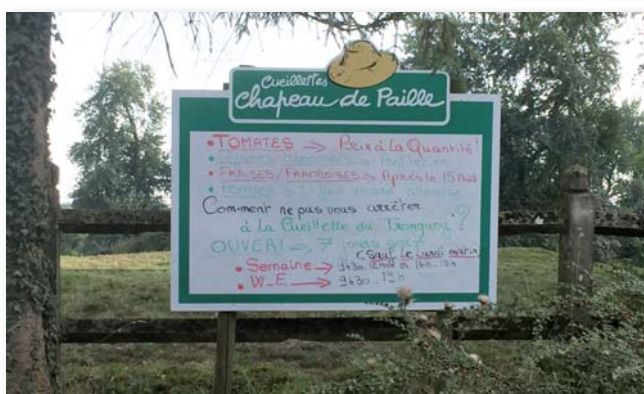 Cueillettes
Chapeau de Paille
• TOMATES → Prix à La Quantité!
• FRAISES/FRAMBOISES → Après le 15 Août
Comment ne pas vous arrêter
à La Cueillette du Tronquoy ?
OUVERT → 7 jours
(sauf le lundi matin)
• Semaine → 9h30
• W_E → 9h30_19h